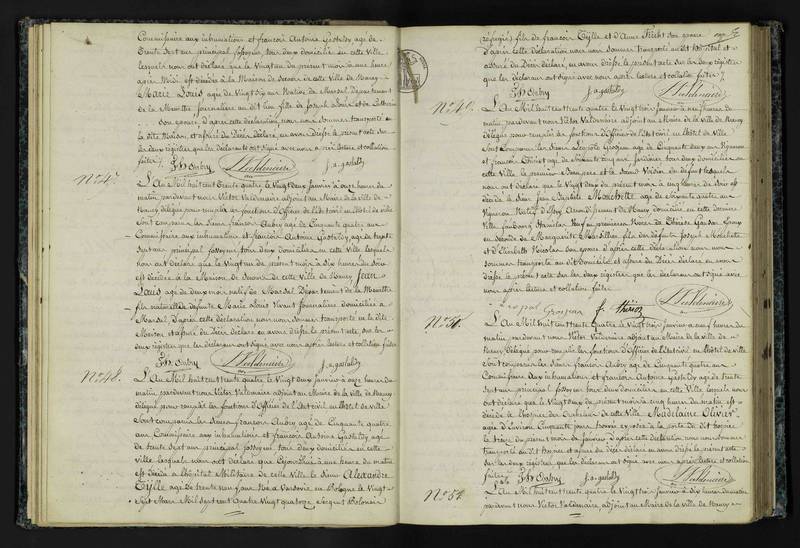 Commissaire aux inhumations et françois Antoine Gastaldy agé de
Trente Sept ans principal fossoyeur, tous deux domiciliés en cette Ville
lesquels nous ont déclaré que le Vingt un du présent mois à une heure
après Midi est décédée à la Maison de Secours de cette Ville de Nancy
Marie Louis agée de Vingt Six ans Native de Marsal Département
de la Meurthe, Journalière au dit lieu fille de Joseph Louis et de Catherine
Son épouse, d'après cette déclaration nous nous sommes transporté en
la dite Maison, et assuré du Décès déclaré, en avons dressé le présent acte sur
les deux registres que les déclarants ont Signé avec nous après lecture et collation
faites
fs Aubry
j. a. gastaldy
N.° 47.
L'An Mil huit cent Trente quatre le Vingt deux Janvier à onze heures du
matin, pardevant nous Victor Valdenaire adjoint au Maire de la ville de
Nancy délégué pour remplir les fonctions d'Officier de l'état civil en l'hôtel de ville
sont comparus les Sieurs françois Aubry agé de Cinquante quatre ans
Commissaire aux inhumations et françois Antoine Gastaldy agé de trente
Sept ans principal fossoyeur tous deux domiciliés en cette Ville lesquels
nous ont déclaré que le Vingt un du présent mois à dix heures du Soir
est décédé à la Maison de Secours de cette Ville de Nancy Jean
Louis agé de deux mois natif de Marsal Département de la Meurthe
fils naturel de Marie Louis Vivant Journalière domiciliée à
Marsal. D'après cette déclaration nous nous sommes transporté en la dite
Maison et assuré du Décès déclaré en avons dressé le présent acte, sur les
deux registres que les déclarants ont signé avec nous après lecture et collation faites
fs Aubry
j. a. gastaldy
N.° 48.
L'An Mil huit cent trente quatre le Vingt deux Janvier à onze heures du
matin, pardevant nous Victor Valdenaire adjoint au Maire de la Ville de Nancy
délégué pour remplir les fonctions d'Officier de l'état civil en l'hôtel de Ville
Sont comparus les Sieurs françois Aubry agé de Cinquante quatre
ans Commissaire aux inhumations et françois Antoine Gastaldy agé
de trente Sept ans principal fossoyeur tous deux domiciliés en cette
Ville lesquels nous ont déclaré que Aujourd'hui à une heure du matin
est Décédé à l'hôpital Militaire de cette Ville le Sieur Alexandre
Tylle agé de trente neuf ans Né à Varsovie en Pologne le Vingt
Sept Mars Mil Sept cent Quatre Vingt quatorze, Sergent Polonais
(réfugié) fils de françois Tylle et d'Anne Son épouse
D'après cette déclaration nous nous sommes transporté au dit hôpital et
assuré du Décès déclaré, en avons dressé le présent acte sur les deux registres
que les déclarants ont signé avec nous après lecture et collation faites
fs Aubry
j. a. gastaldy
N.° 49.
L'An Mil huit cent trente quatre le Vingt trois Janvier à neuf heures du
matin, pardevant nous Victor Valdenaire adjoint au Maire de la Ville de Nancy
délégué pour remplir les fonctions d'Officier de l'état civil en l'hôtel de Ville
Sont Comparus les Sieurs Léopold Grosjean agé de Cinquante deux ans Vigneron
et françois Thiriot agé de cinq ans, Jardinier tous deux domiciliés en
cette Ville, le premier et le Second Voisin du défunt lesquels
nous ont déclaré que le Vingt deux du présent mois à cinq heures du Soir est
décédé le Sieur Jean Baptiste Mouchette agé de Soixante quatre ans
Vigneron Natif d'Essey Arrondissement de Nancy domicilié en cette dernière
Ville, faubourg Stanislas, Veuf en premières Noces de Thérèse
en Seconde de Marguerite fils des défunts Joseph Mouchette
et d'Elisabeth Nicolas Son épouse d'après cette déclaration nous nous
sommes transporté au dit Domicile et assuré du Décès déclaré en avons
dressé le présent acte sur les deux registres que les déclarants ont signé avec
nous après lecture et collation faites
Léopol Grosjean
f. thiriot
N.° 50.
L'An Mil huit cent trente quatre le Vingt trois Janvier à neuf heures du
matin, pardevant nous Victor Valdenaire adjoint au Maire de la ville de
Nancy Délégué pour remplir les fonctions d'Officier de l'état civil en l'hôtel de Ville
Sont comparus les Sieurs françois Aubry agé de Cinquante quatre ans
Commissaire Aux inhumations et françois Antoine Gastaldy agé de trente
Sept ans, principal fossoyeur tous deux domiciliés en cette Ville, lesquels nous
ont déclaré que le Vingt deux du présent mois à cinq heures du matin est
décédée à l'hospice des Orphelins de cette Ville Madelaine Olivier
agée d'Environ Cinquante jours exposée à la porte du dit hospice
le treize du présent mois de Janvier d'après cette déclaration nous nous sommes
transporté au dit hospice et assuré du Décès déclaré en avons dressé le présent acte
sur les deux registres que les déclarants ont signé avec nous après lecture et collation
faites
fs Aubry
j. a. gastaldy
N.° 51.
L'An Mil huit cent trente quatre le Vingt trois Janvier à dix heures du matin
pardevant nous Victor Valdenaire, adjoint au Maire de la Ville de Nancy